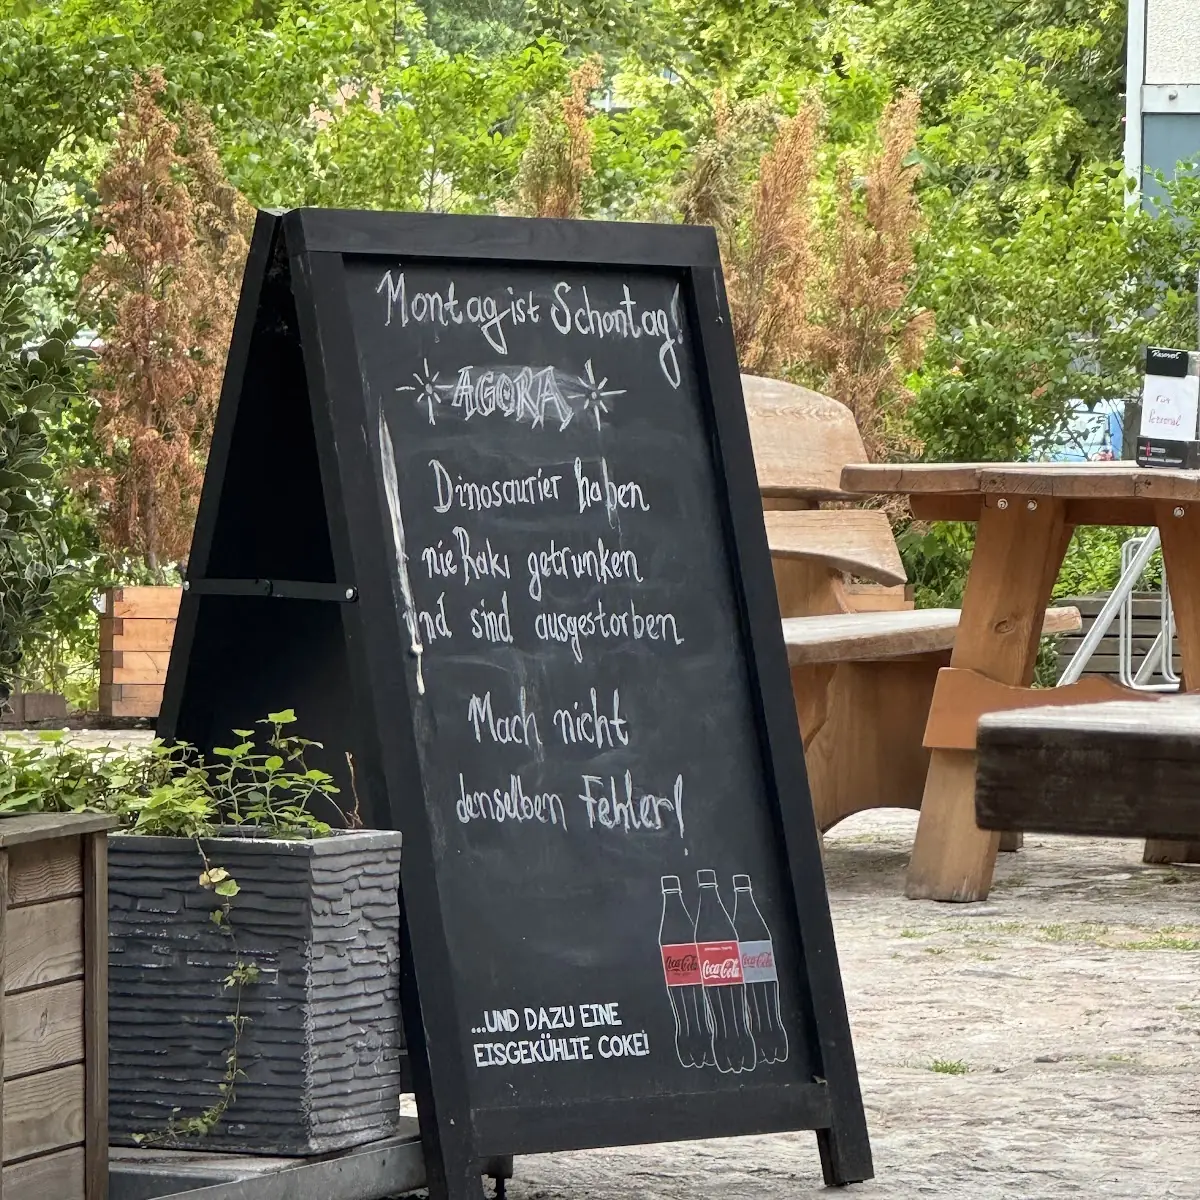 Montag ist Schontag!
AGORA
Dinosaurier haben
nie Raki getrunken
und sind ausgestorben.
Mach nicht
denselben Fehler!
Coca-Cola
Coca-Cola
Coca-Cola
...UND DAZU EINE
EISGEKÜHLTE COKE!
Reserved
für
Personal